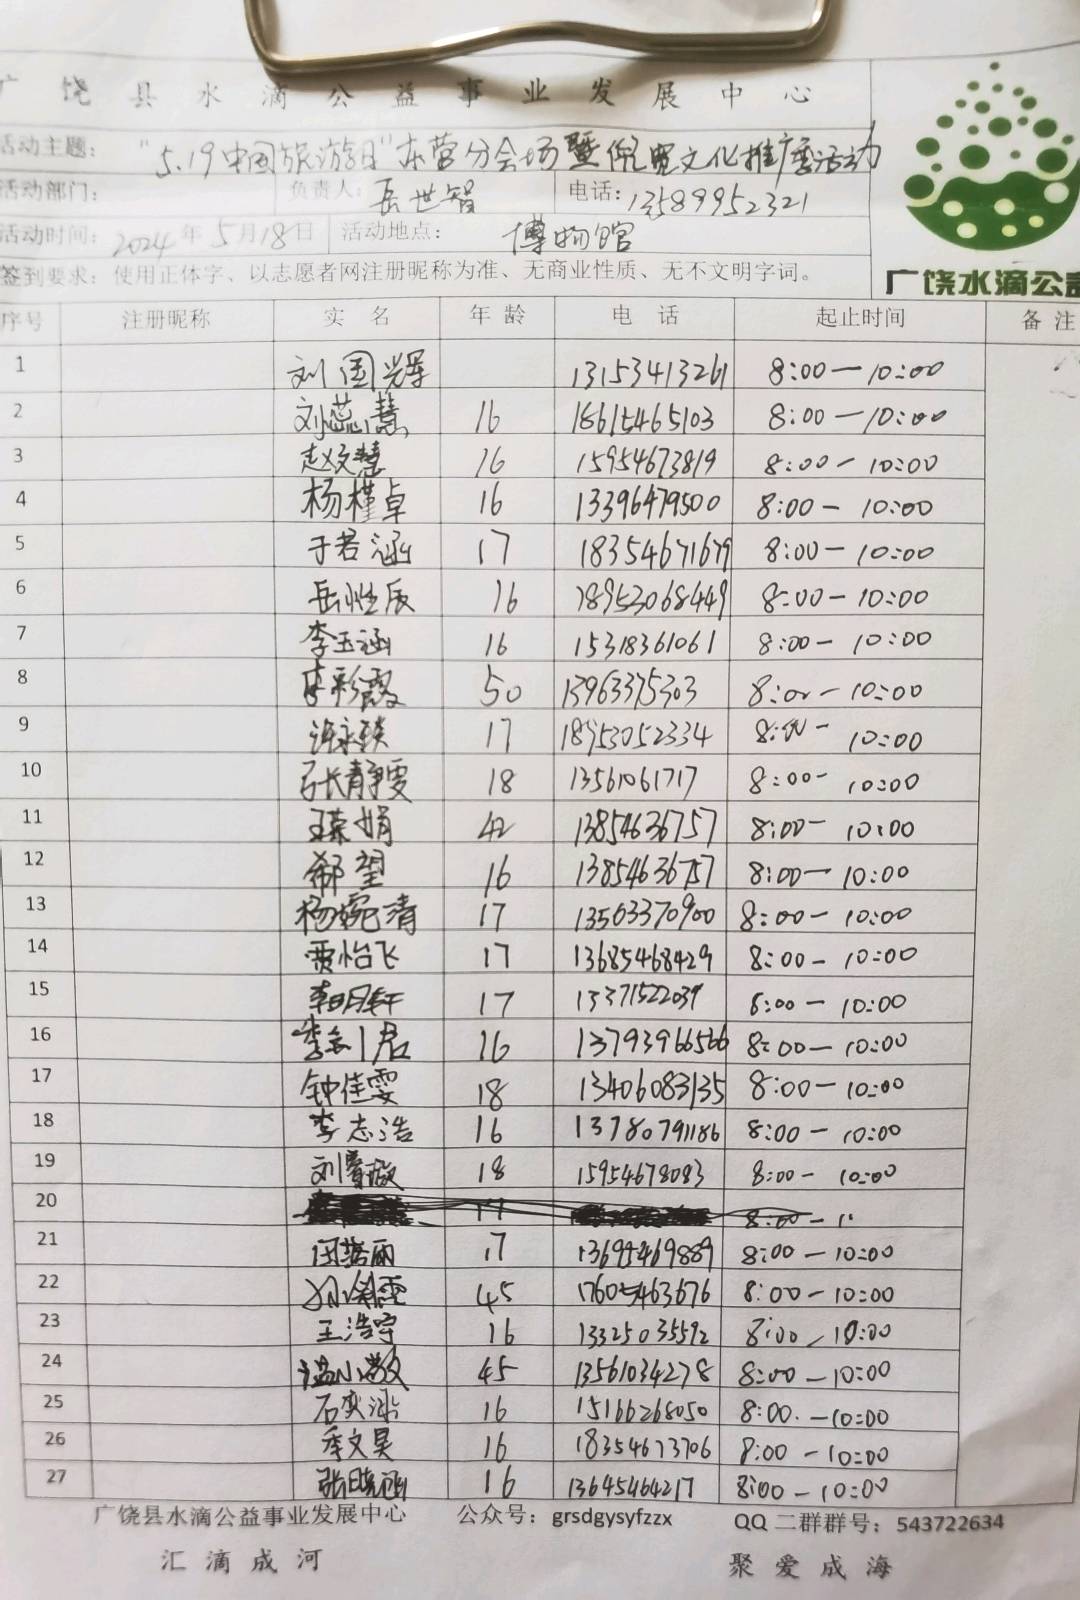 广饶县水滴公益事业发展中心
活动主题： "5.19中国旅游日"东营分会场暨倪宽文化推广活动
活动部门： 负责人：岳世智 电话：13589952321
活动时间：2024年5月18日 活动地点： 博物馆
签到要求：使用正体字、以志愿者网注册昵称为准、无商业性质、无不文明字词。
广饶水滴公益
序号 注册昵称 实 名 年 龄 电 话 起止时间 备 注
1 刘国辉 13153413261 8:00—10:00
2 刘蕊慧 16 18615465103 8:00—10:00
3 赵文慧 16 15954673819 8:00-10:00
4 杨槿卓 16 13396479500 8:00-10:00
5 于若涵 17 18354671679 8:00-10:00
6 岳 辰 16 18953068449 8:00-10:00
7 李玉涵 16 15318361061 8:00-10:00
8 李彩霞 50 13963375303 8:00-10:00
9 许永 17 18953052334 8:00-10:00
10 张静雯 18 13561061717 8:00-10:00
11 王荣娟 42 13854636757 8:00-10:00
12 郗望 16 13854636757 8:00-10:00
13 杨婉清 17 13563370900 8:00-10:00
14 贾怡飞 17 13685468429 8:00-10:00
15 轩 17 13371522039 8:00-10:00
16 李 君 16 13793966566 8:00-10:00
17 钟佳雯 18 13406083135 8:00-10:00
18 李志浩 16 13780791186 8:00-10:00
19 刘 18 15954678083 8:00-10:00
20 17 8:00-1
21 丽 17 13695469889 8:00-10:00
22 45 17605463676 8:00-10:00
23 王浩宇 16 13325035592 8:00-10:00
24 温小敬 45 13561034278 8:00-10:00
25 石奕泳 16 15166268050 8:00-10:00
26 季文昊 16 18354673706 8:00-10:00
27 张晓涵 16 13645464217 8:00-10:00
广饶县水滴公益事业发展中心 公众号：grsdgysyfzzx QQ二群群号：543722634
汇滴成河 聚爱成海